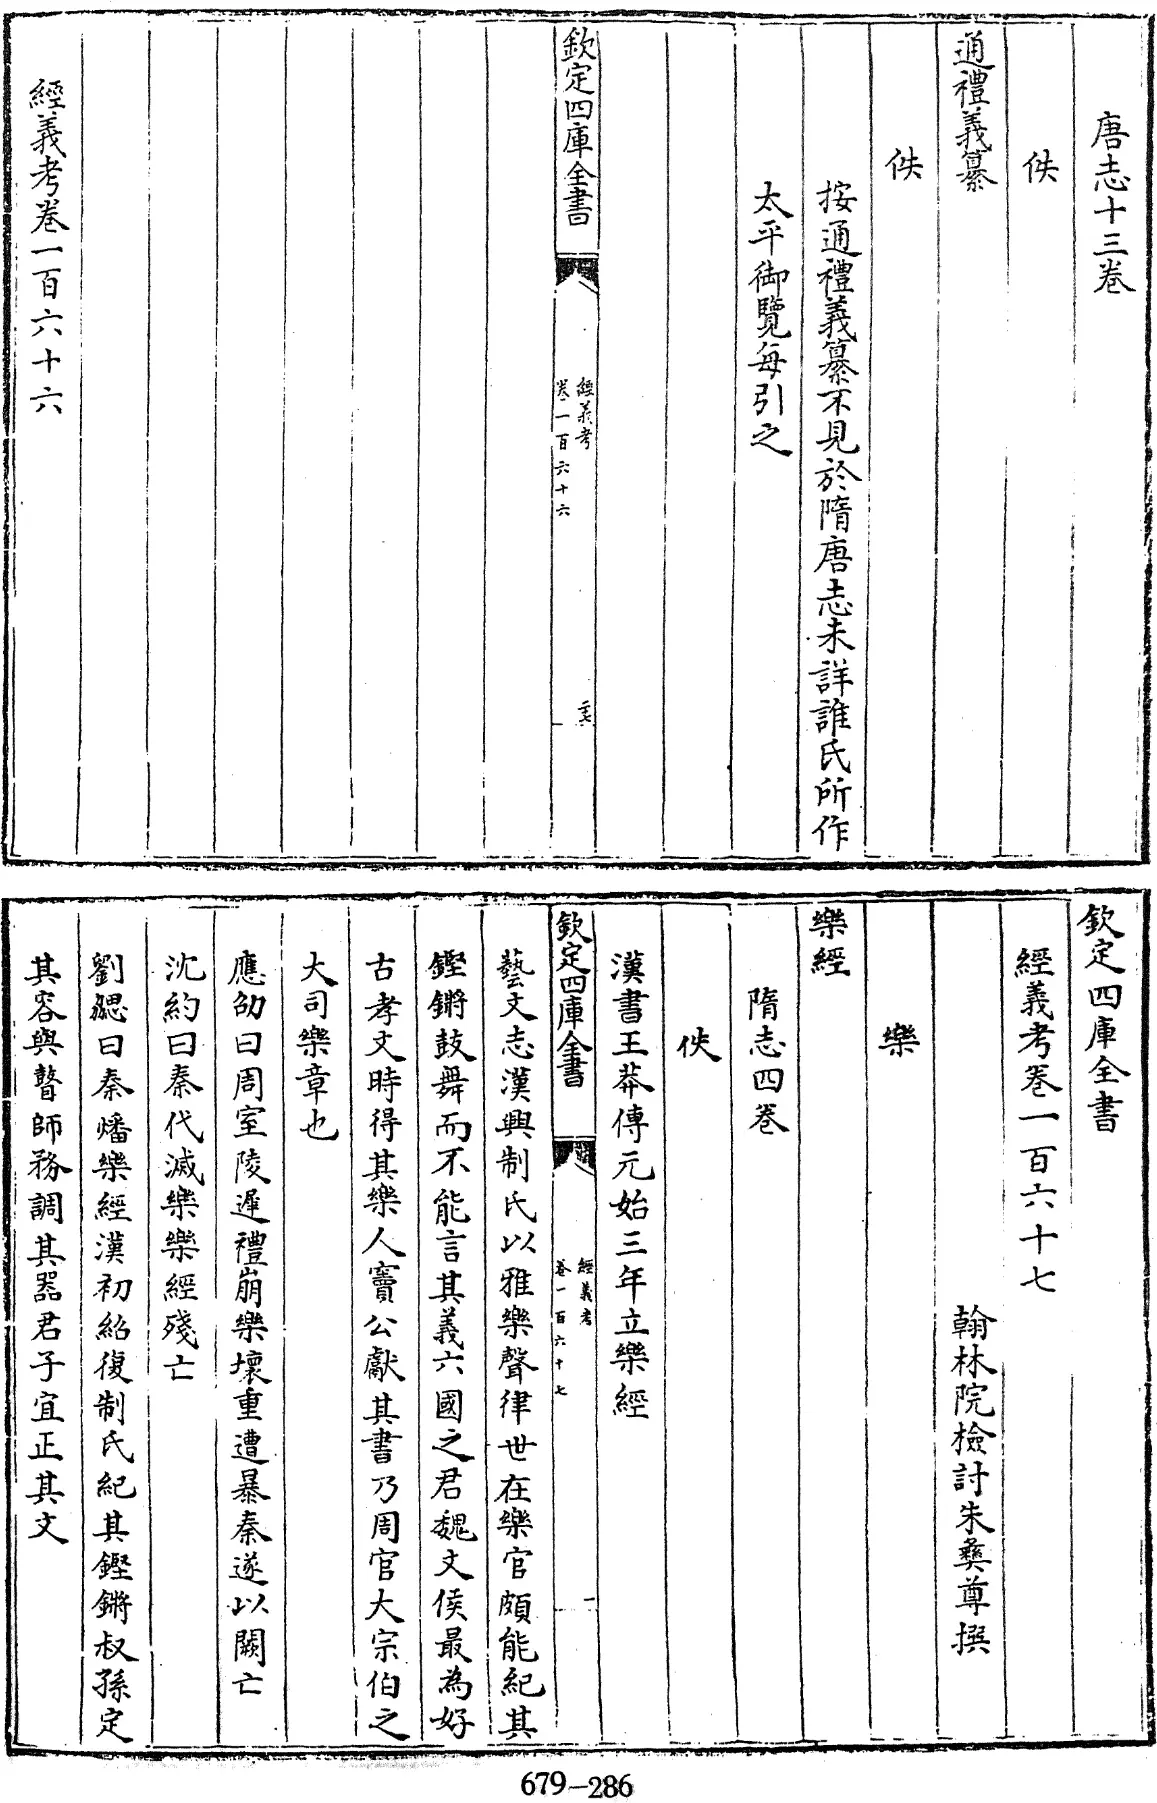 唐志十三卷
佚
通禮義纂
佚
按通禮義纂不見於隋唐志未詳誰氏所作
太平御覽每引之
欽定四庫全書
經義考
卷一百六十六
經義考卷一百六十六
欽定四庫全書
經義考卷一百六十七
翰林院檢討朱彝尊撰
樂
樂經
隋志四卷
佚
漢書王莽傳元始三年立樂經
欽定四庫全書
經義考
卷一百六十七
一
藝文志漢興制氏以雅樂聲律世在樂官頗能紀其
鏗鏘鼓舞而不能言其義六國之君魏文侯最為好
古孝文時得其樂人竇公獻其書乃周官大宗伯之
大司樂章也
應劭曰周室陵遲禮崩樂壞重遭暴秦遂以闕亡
沈約曰秦代滅樂樂經殘亡
劉勰曰秦燔樂經漢初紹復制氏紀其鏗鏘叔孫定
其容與瞽師務調其器君子宜正其文
679-286